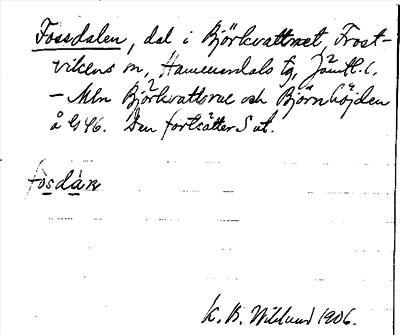 Fossdalen, dal i Björkvattnet, Frost-
vikens sn, Hammerdals tg, Jämtl. l.
— Mln Björkvattnet och Björnhöjden
å bl 46. Den fortsätter S ut.
fòsdàn
K. B. Wiklund 1906.